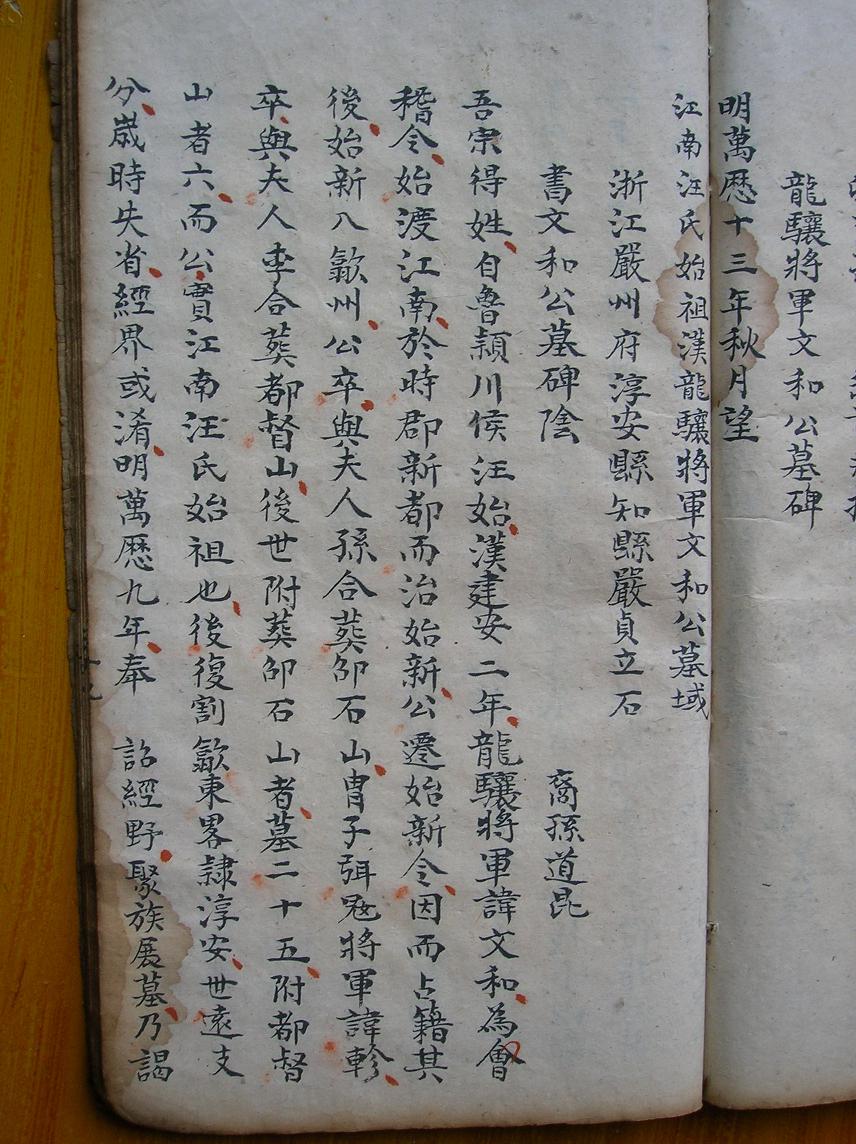 龍驤將軍文和公墓碑
明萬歷十三年秋月望
江南汪氏始祖漢龍驤將軍文和公墓域
浙江嚴州府淳安縣知縣嚴貞立石
書文和公墓碑陰
裔孫道昆
吾宗得姓自魯潁川侯汪始漢建安二年龍驤將軍諱文和為會
稽令始渡江南於時郡新都而治始新公遷始新令因而占籍其
後始新入歙州公卒與夫人孫合葬卲石山胄子弭冦將軍諱軫
卒與夫人李合葬都督山後世附葬卲石山者墓二十五附都督
山者六而公實江南汪氏始祖也後復割歙東畧隸淳安世遠支
分嵗時失省經界或淆明萬歷九年奉
詔經野聚族展墓乃謁